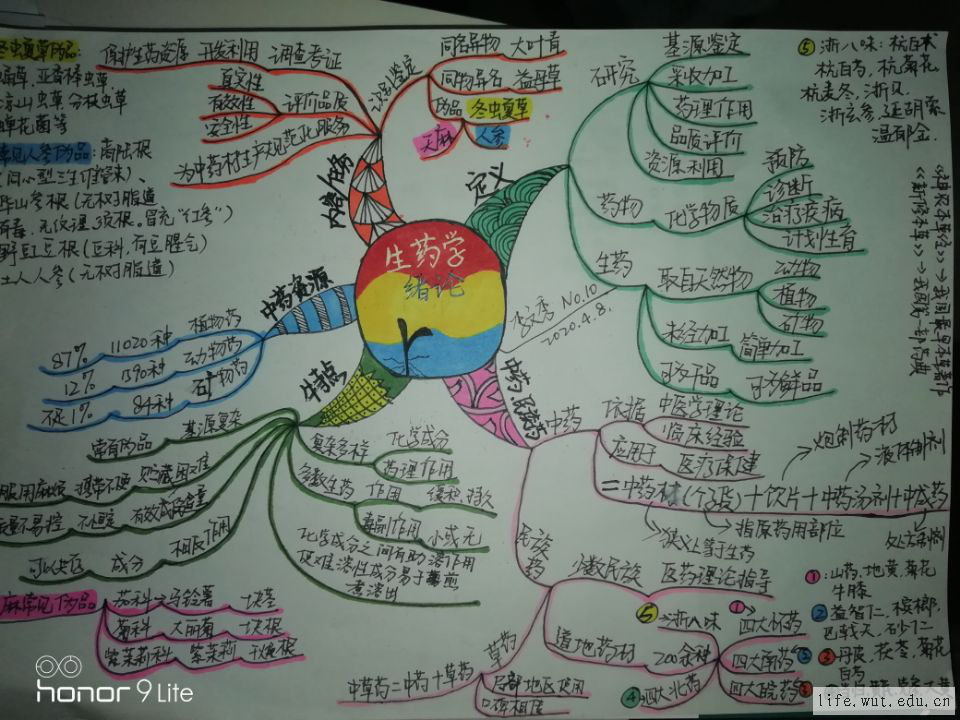 生药学
绪论
李文秀 No.10
2020.4.8.
定义
研究
基源鉴定
采收加工
药理作用
品质评价
资源利用
药物
化学物质
预防
诊断
治疗疾病
计划生育
生药
取自天然物
动物
植物
矿物
未经加工
简单加工
可为干品
可为鲜品
中药
依据
中医学理论
临床经验
应用于
医疗保健
饮片+中药汤剂+中成药
炮制药材
液体制剂
处方制剂
指原药用部位
狭义上等于生药
民族药
少数民族
医药理论指导
草药
局部地区使用
中草药=中药+草药
道地药材
200余种
⑤→浙八味
①→四大怀药
四大南药②
四大皖药③
④四大北药
①:山药、地黄、菊花
牛膝
②益智仁、槟榔、
巴戟天、砂仁
③丹皮、茯苓、菊花
白芍
⑤浙八味:杭白术
杭白芍,杭菊花
杭麦冬、浙贝
浙玄参、延胡索
温郁金.
《神农本草经》→我国最早本草著作
《新修本草》→我国第一部药典
识别鉴定
同名异物
大叶青
同物异名
益母草
伪品
冬虫夏草
天麻
人参
保护生药资源
开发利用
调查考证
真实性
有效性
安全性
评价品质
为中药材生产规范化服务
中药资源
植物药
11020种
87%
动物药
1590种
12%
矿物药
84种
不足1%
特点
基源复杂
常有伪品
贮藏困难
携带不便
服用麻烦
有效成分含量
不恒定
质量不易控
相反作用
成分
复杂多样
化学成分
药理作用
多数生药
作用
缓和、持久
毒副作用
小或无
化学成分之间有助溶作用
使难溶性成分易于煎
煮溶出
茄科→马铃薯
块茎
菊科
大丽菊
块根
紫茉莉科
紫茉莉
冬虫夏草伪品:
亚香棒虫草
凉山虫草、分枝虫草
蝉花菌等
常见人参伪品:商陆根
华山参根(无树脂道)
野豇豆根(豆科,有豆腥气)
土人参(无树脂道)
honor 9 Lite
life.wut.edu.cn